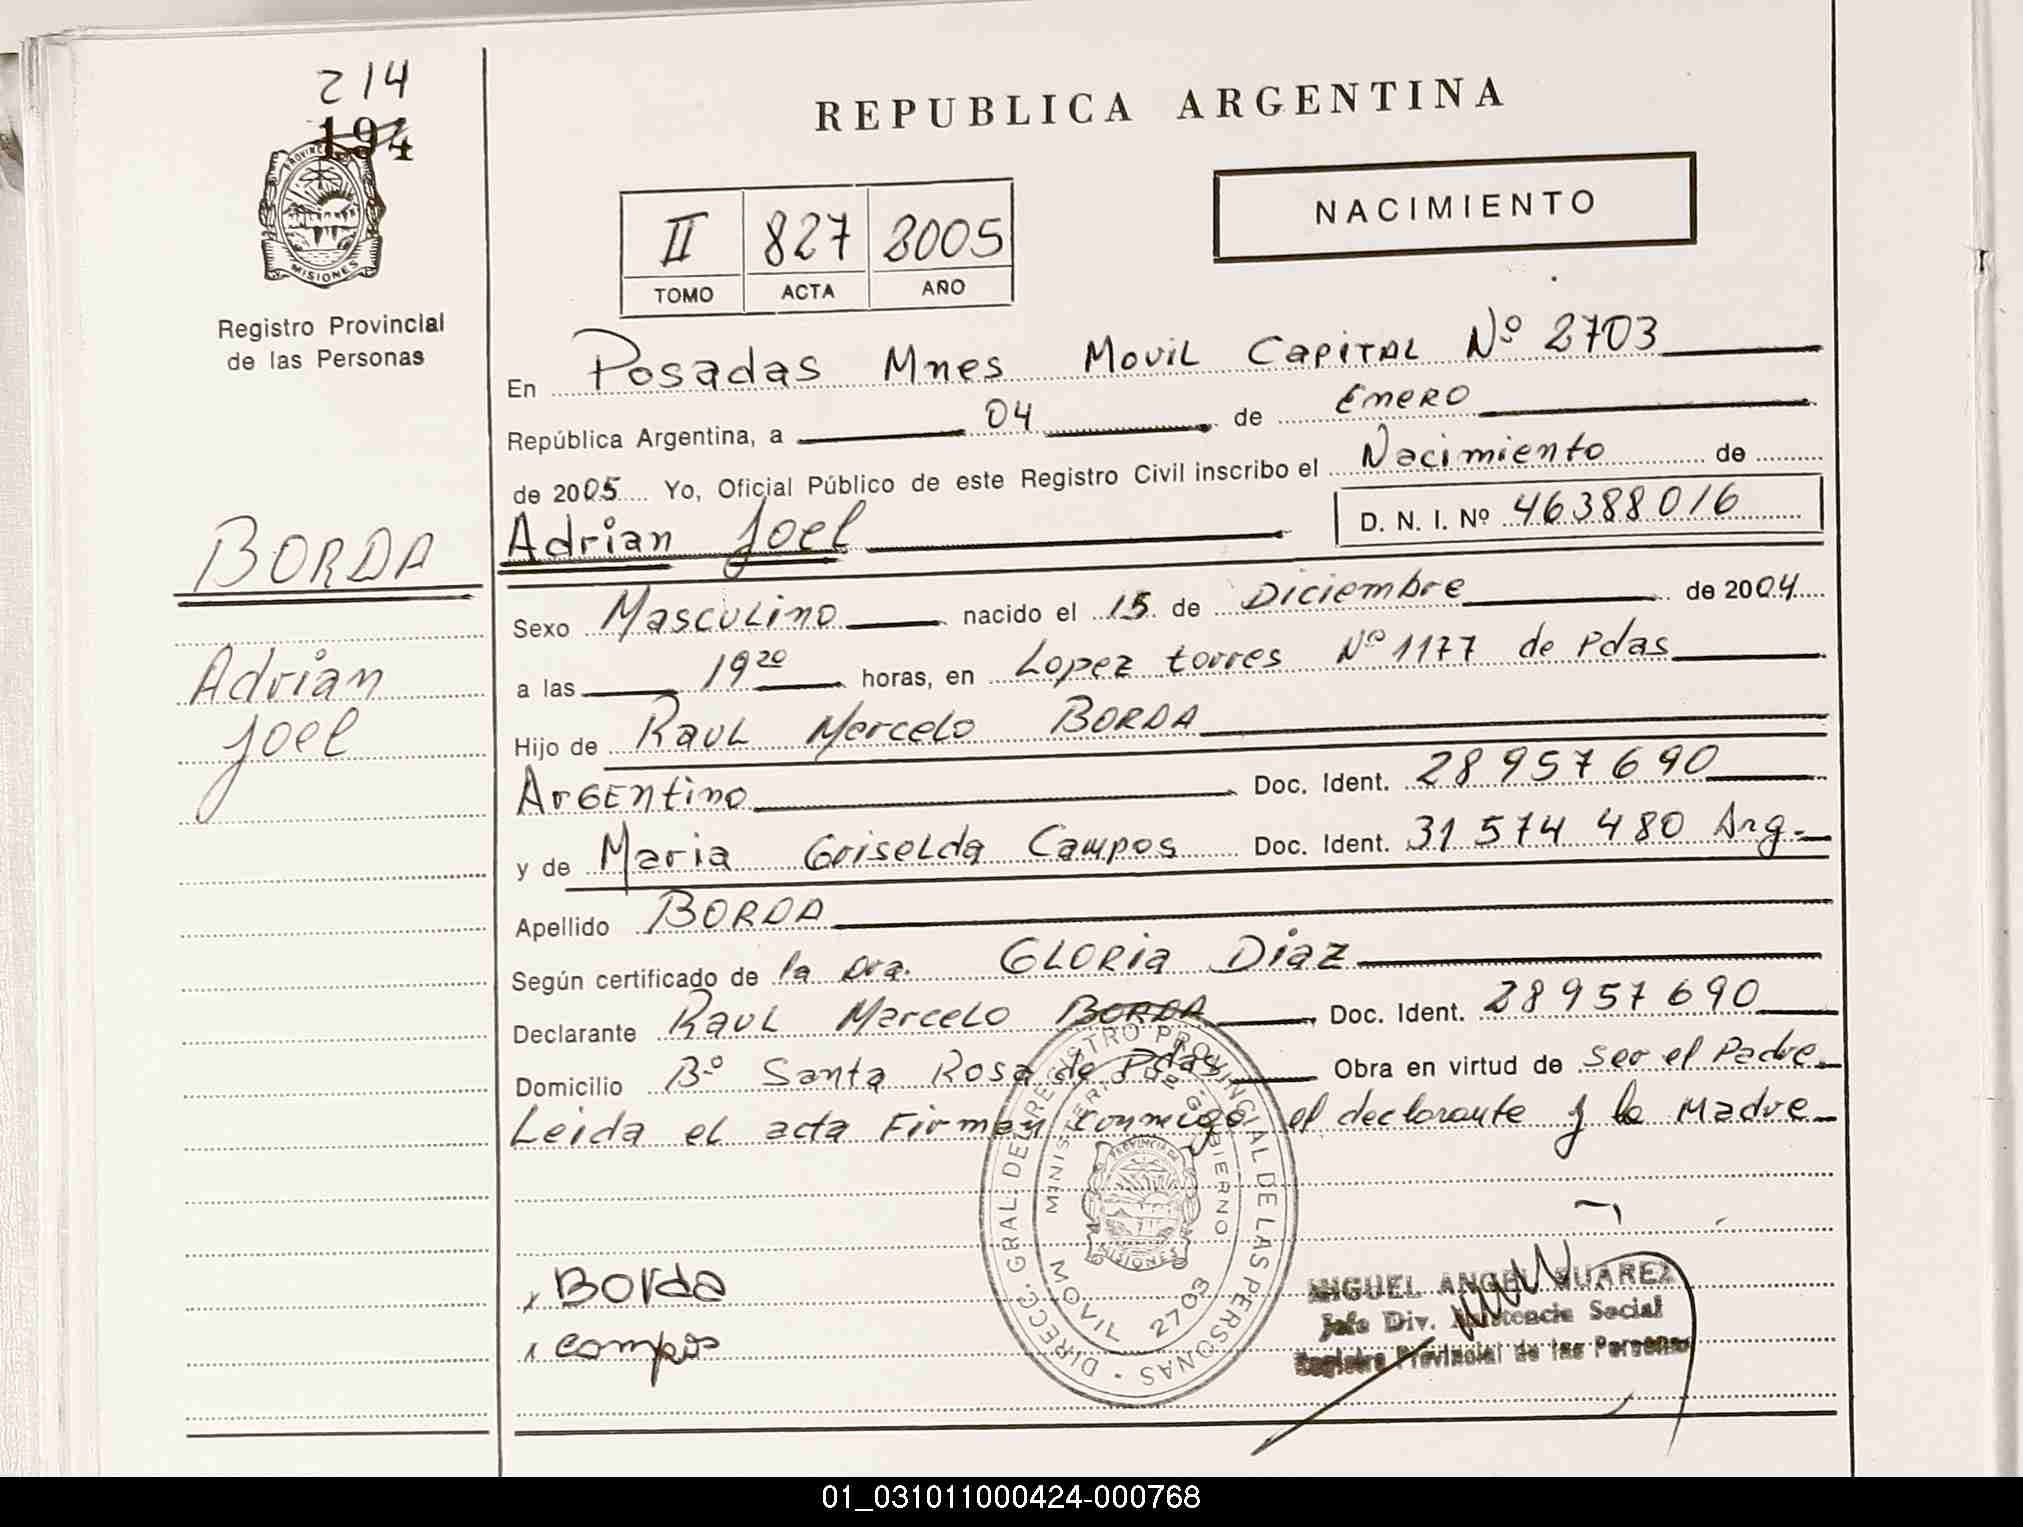 214
194
PROVINCIA
MISIONES
Registro Provincial
de las Personas
BORDA
Adrian
Joel
REPUBLICA ARGENTINA
NACIMIENTO
II 827 2005
TOMO ACTA AÑO
En Posadas Mnes Movil Capital Nº 2703
República Argentina, a 04 de Enero
de 2005 Yo, Oficial Público de este Registro Civil inscribo el Nacimiento de
Adrian Joel D. N. I. Nº 46388016
Sexo Masculino nacido el 15 de Diciembre de 2004
a las 19 20 horas, en Lopez torres Nº 1177 de Pdas
Hijo de Raul Marcelo BORDA
Argentino Doc. Ident. 28957690
y de Maria Griselda Campos Doc. Ident. 31 574 480 Arg.
Apellido BORDA
Según certificado de la Dra. Gloria Diaz
Declarante Raul Marcelo BORDA Doc. Ident. 28957690
Domicilio Bº Santa Rosa de Pdas Obra en virtud de ser el Padre
Leida el acta Firman conmigo el declarante y la Madre
DIRECC. GRAL. DEL REGISTRO PROVINCIAL DE LAS PERSONAS
MINISTERIO DE GOBIERNO
PROVINCIA DE
MISIONES
MOVIL 2703
Borda
Campos
MIGUEL ANGEL SUAREZ
Jefe Div. Asistencia Social
Registro Provincial de las Personas
01_031011000424-000768